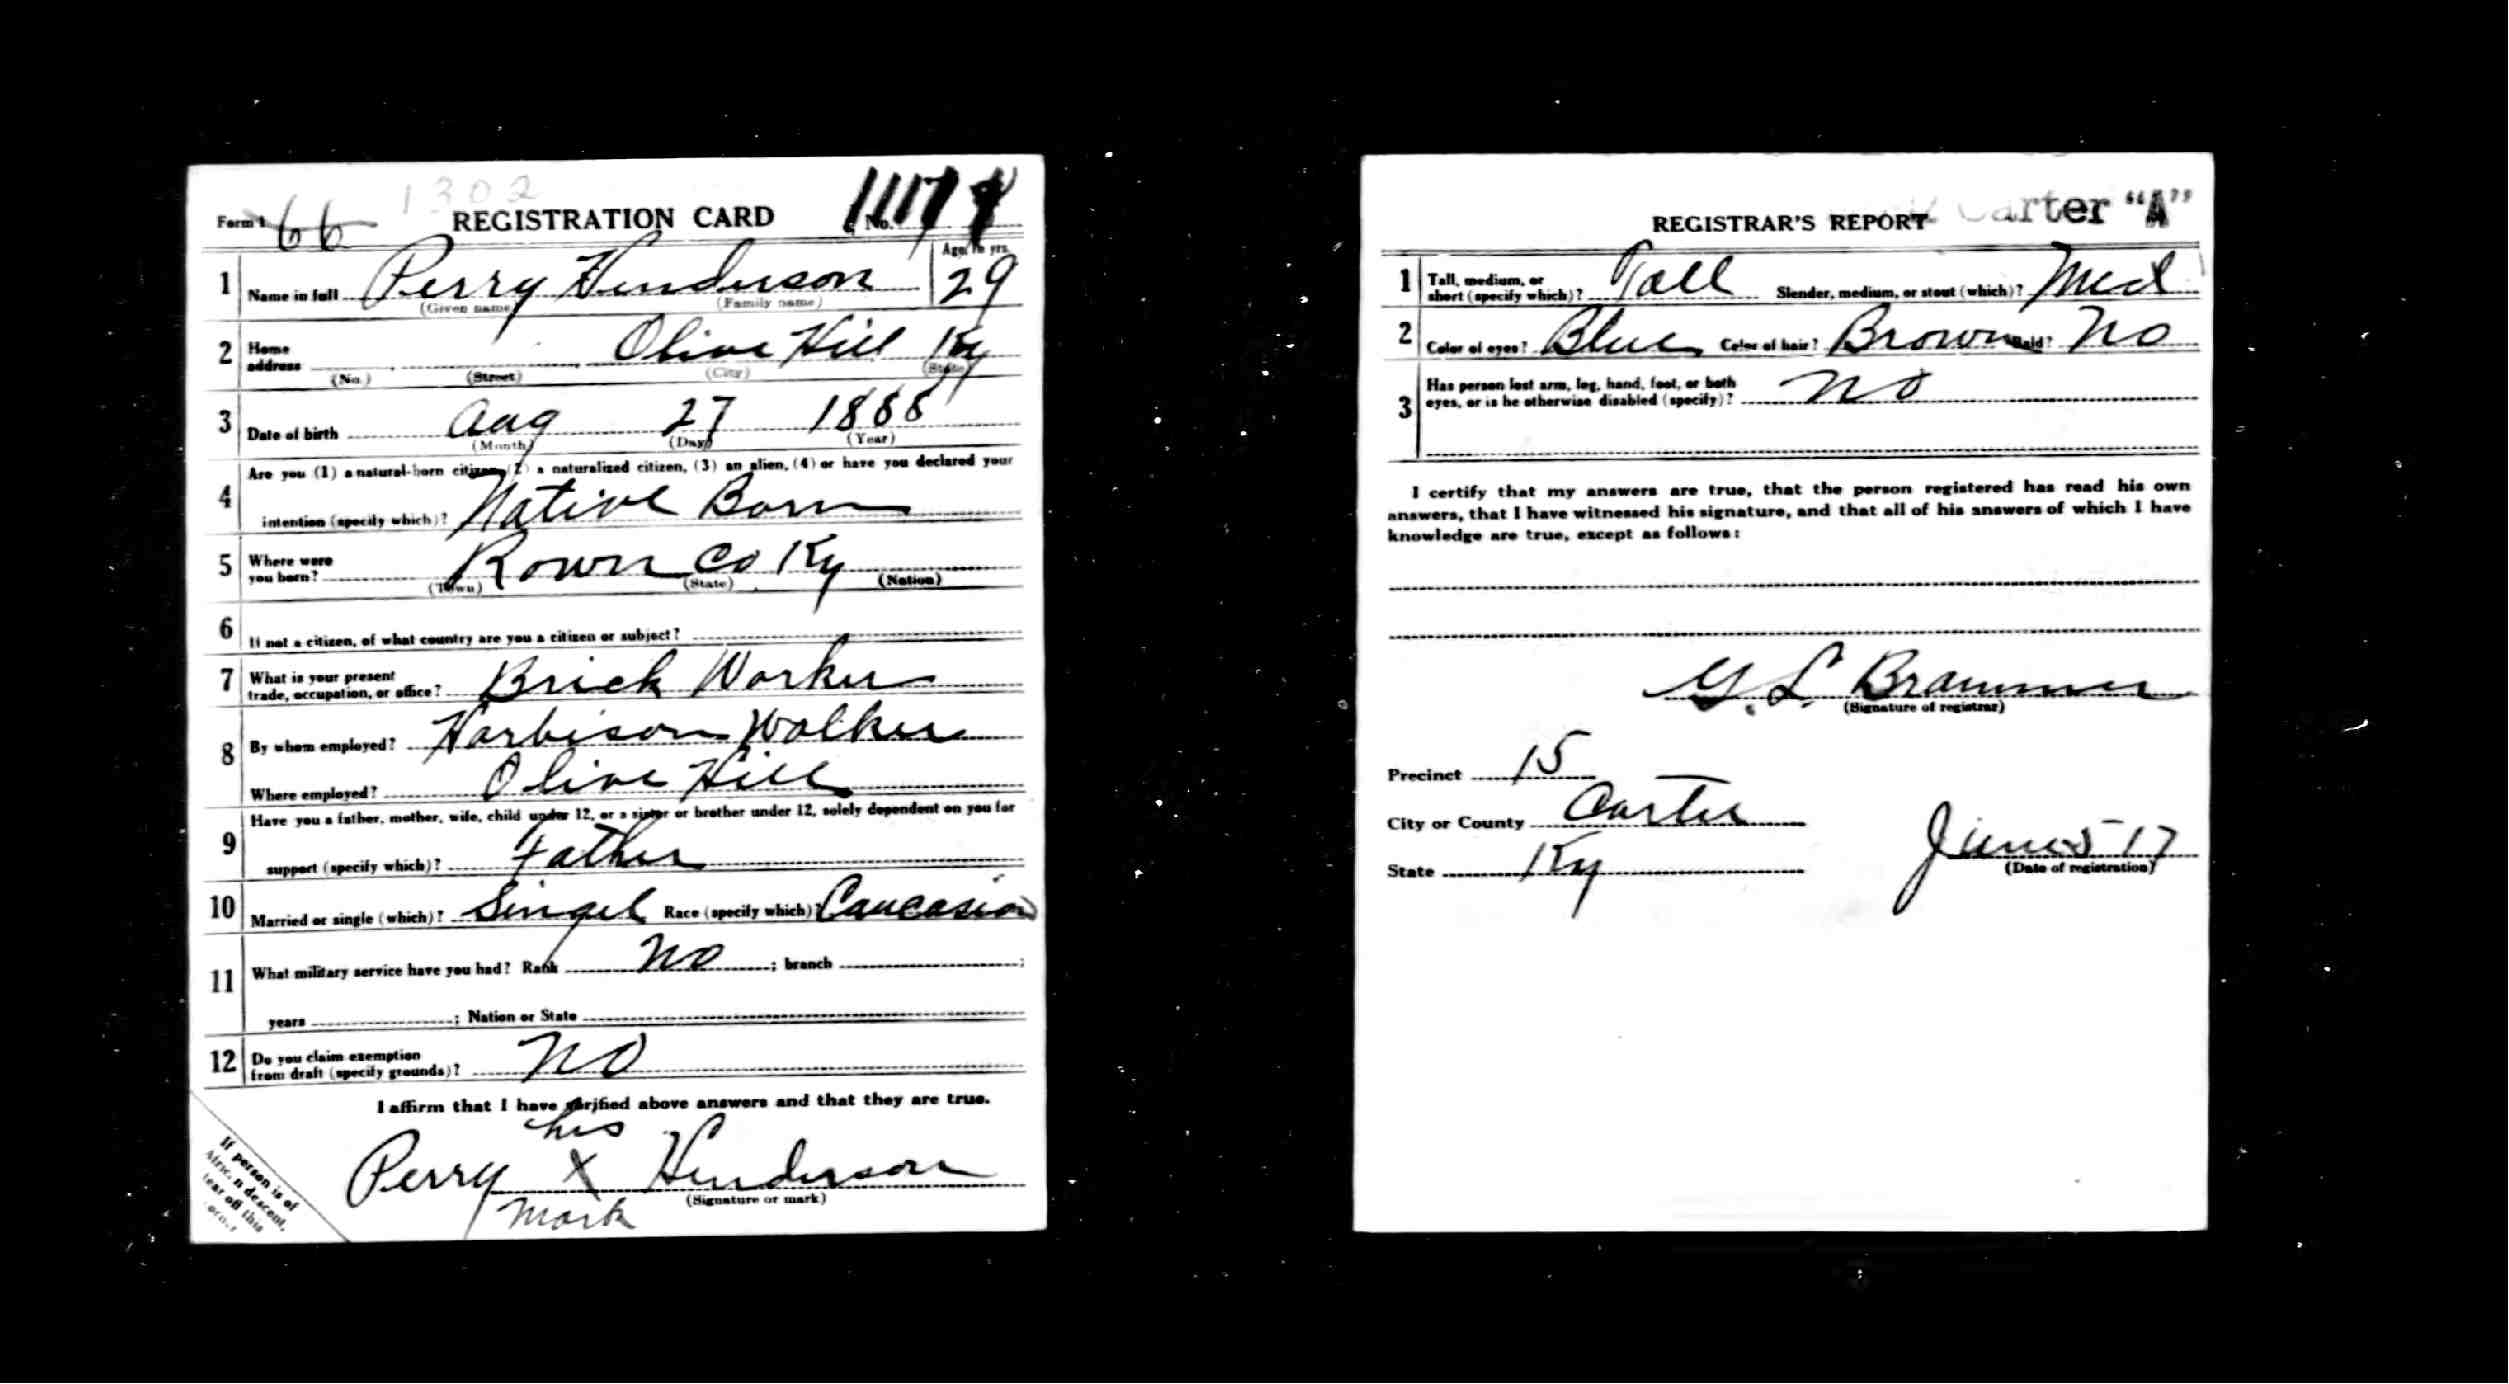 1302
Form 1 66 REGISTRATION CARD No.
Age, in yrs.
1 Name in full Perry Henderson 29
(Given name) (Family name)
2 Home address Olive Hill Ky
(No.) (Street) (City) (State)
3 Date of birth Aug 27 1888
(Month) (Day) (Year)
4 Are you (1) a natural-born citizen, (2) a naturalized citizen, (3) an alien, (4) or have you declared your
intention (specify which)? Native Born
5 Where were you born? Rown Co Ky
(Town) (State) (Nation)
6 If not a citizen, of what country are you a citizen or subject?
7 What is your present trade, occupation, or office? Brick Worker
8 By whom employed? Harbison Walker
Where employed? Olive Hill
9 Have you a father, mother, wife, child under 12, or a sister or brother under 12, solely dependent on you for
support (specify which)? Father
10 Married or single (which)? Singel Race (specify which)? Caucasian
11 What military service have you had? Rank No ; branch ;
years ; Nation or State
12 Do you claim exemption from draft (specify grounds)? No
I affirm that I have verified above answers and that they are true.
his
Perry X Henderson
(Signature or mark)
mark
If person is of
African descent,
tear off this
corner
Carter "A"
REGISTRAR'S REPORT
1 Tall, medium, or short (specify which)? Tall Slender, medium, or stout (which)? Med
2 Color of eyes? Blue Color of hair? Brown Bald? No
3 Has person lost arm, leg, hand, foot, or both
eyes, or is he otherwise disabled (specify)? No
I certify that my answers are true, that the person registered has read his own
answers, that I have witnessed his signature, and that all of his answers of which I have
knowledge are true, except as follows:
G. L. Brammer
(Signature of registrar)
Precinct 15
City or County Carter
State Ky June 5 17
(Date of registration)